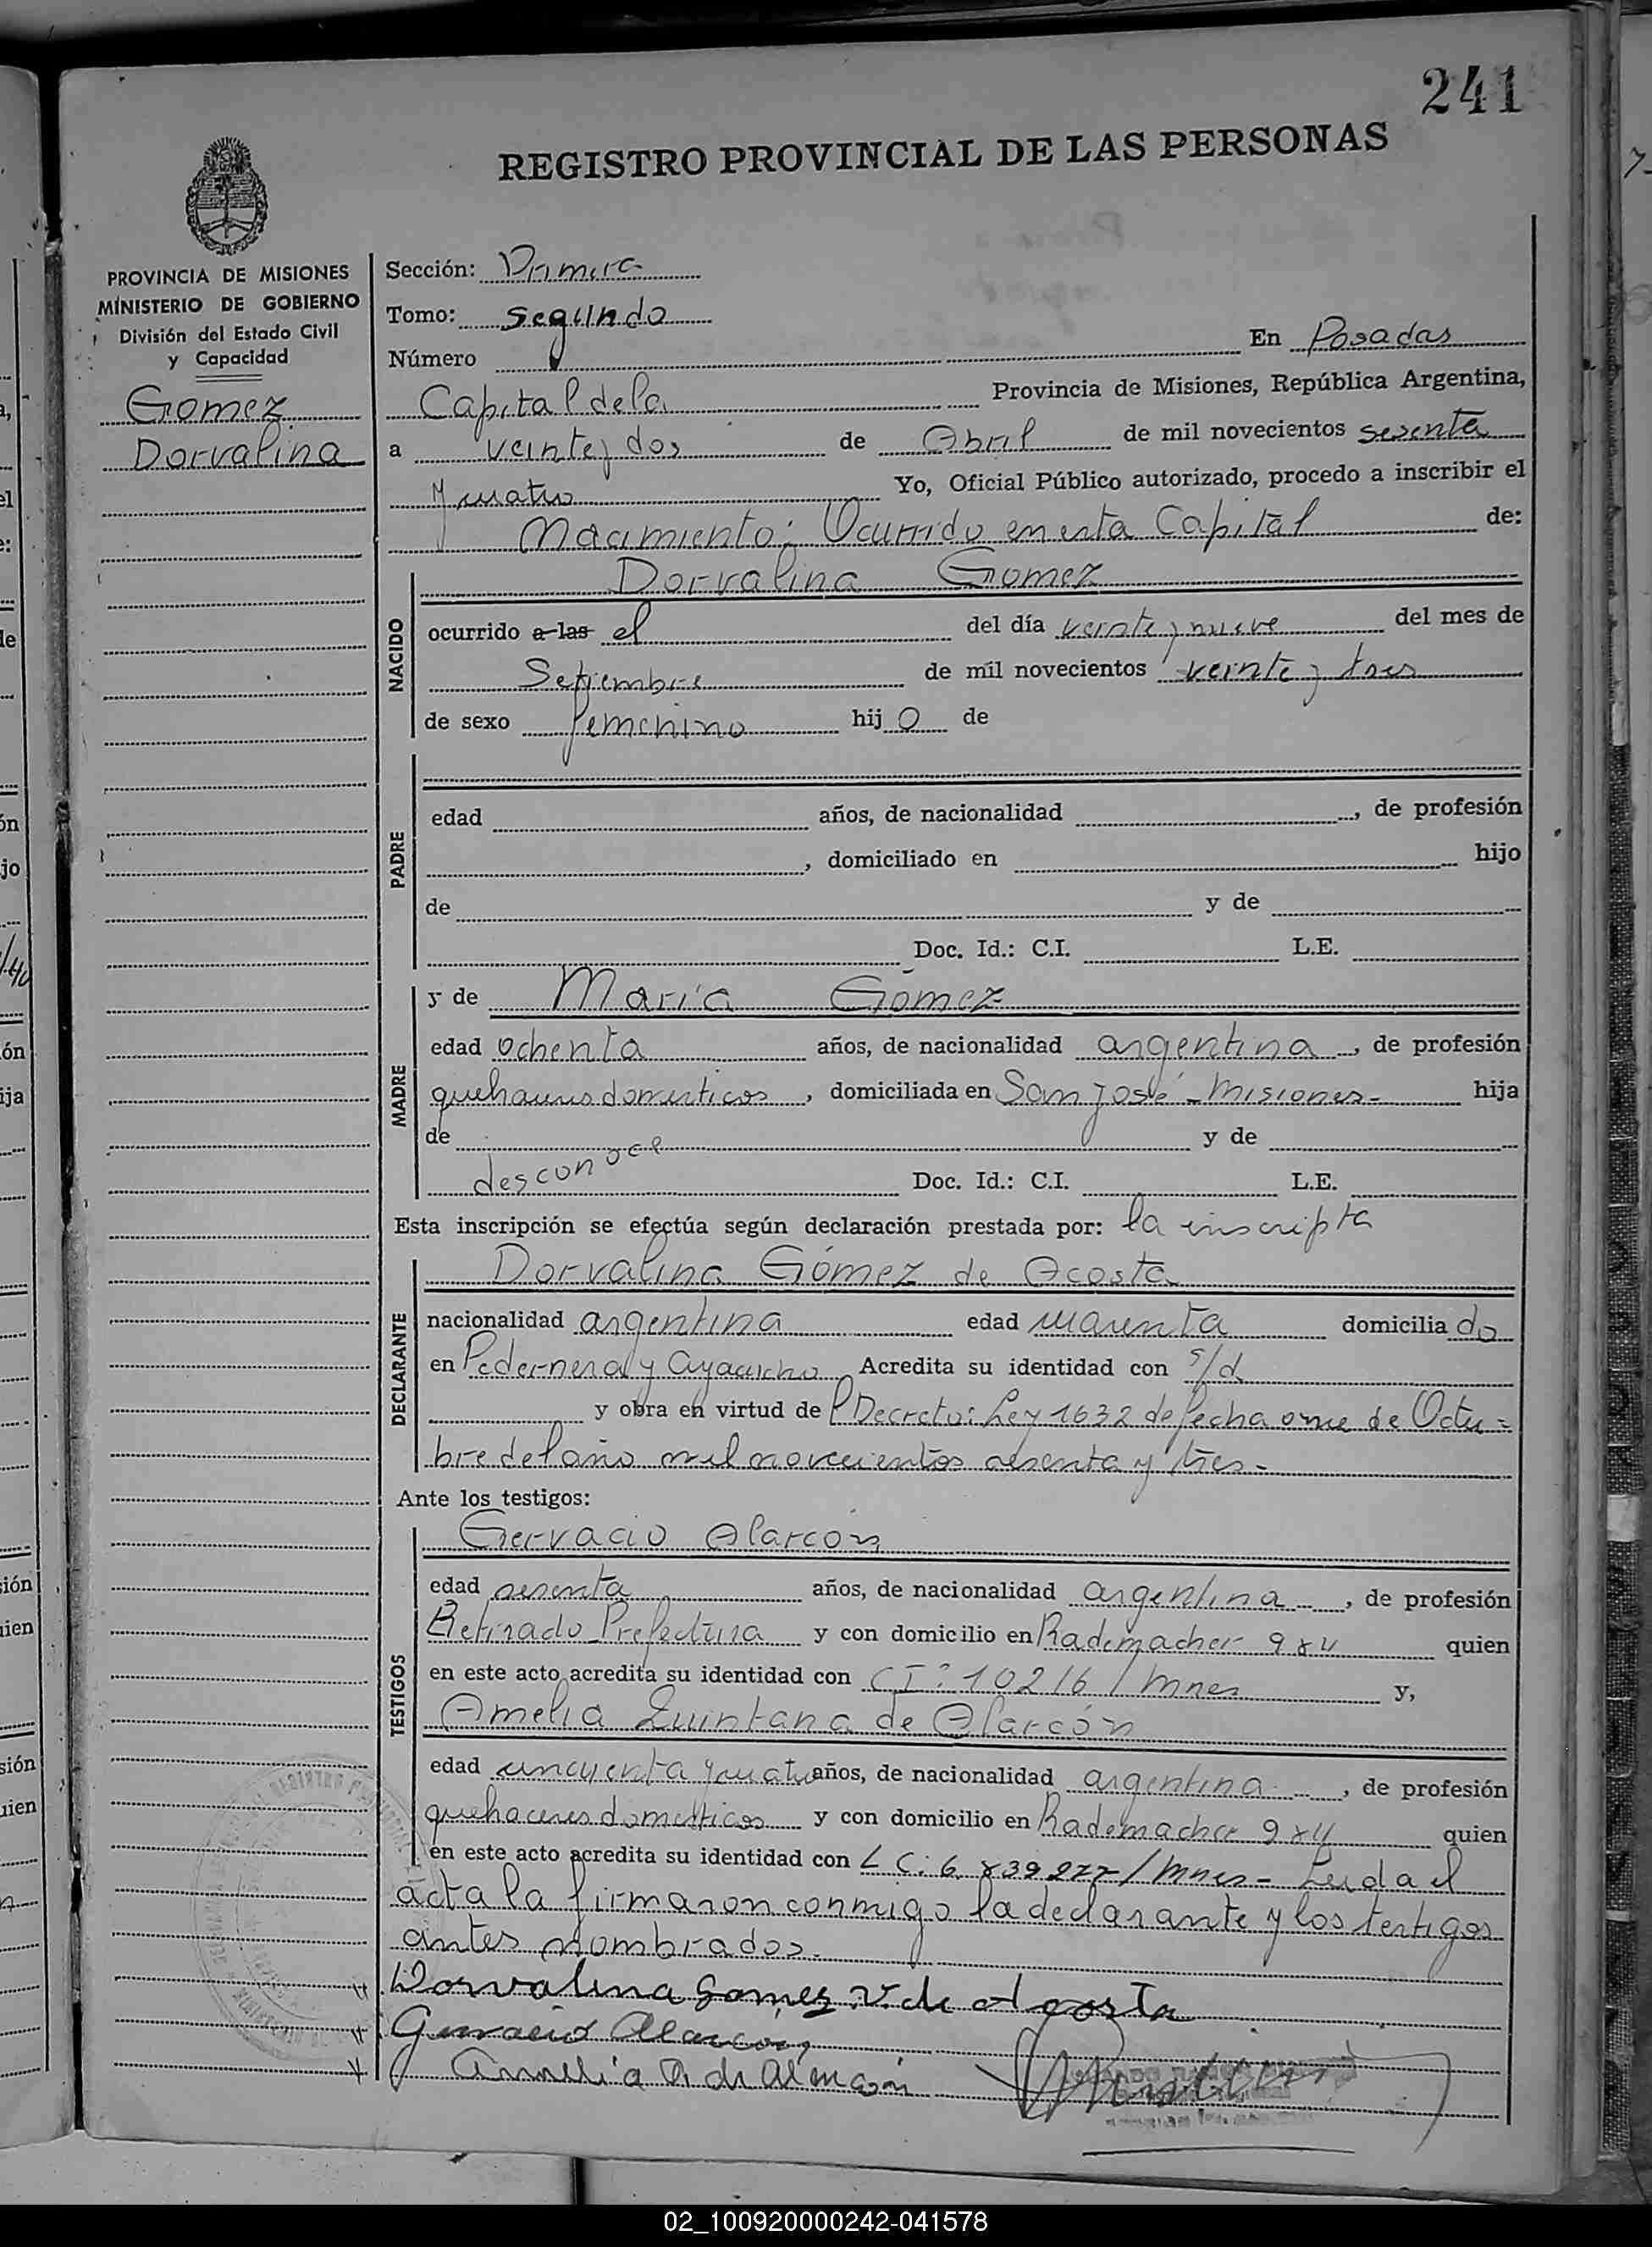 241
REGISTRO PROVINCIAL DE LAS PERSONAS
PROVINCIA DE MISIONES
MINISTERIO DE GOBIERNO
División del Estado Civil
y Capacidad
Gomez
Dorvalina
Sección: Primera
Tomo: segundo
Número En Posadas
Capital de la Provincia de Misiones, República Argentina,
a veinte y dos de Abril de mil novecientos sesenta
y cuatro Yo, Oficial Público autorizado, procedo a inscribir el
Nacimiento: Ocurrido en esta Capital de:
NACIDO
Dorvalina Gomez
ocurrido a las el del día veinte y nueve del mes de
Setiembre de mil novecientos veinte y tres
de sexo femenino hij o de
PADRE
edad años, de nacionalidad , de profesión
, domiciliado en hijo
de y de
Doc. Id.: C.I. L.E.
MADRE
y de María Gomez
edad ochenta años, de nacionalidad argentina, de profesión
quehaceres domesticos, domiciliada en San José - Misiones- hija
de y de
desconoce Doc. Id.: C.I. L.E.
Esta inscripción se efectúa según declaración prestada por: la inscripta
DECLARANTE
Dorvalina Gómez de Acosta
nacionalidad argentina edad cuarenta domicilia do
en Pedernera y Ayacucho Acredita su identidad con s/d
y obra en virtud de l Decreto: Ley 1632 de fecha once de Octu=
bre del año mil novecientos sesenta y tres-
Ante los testigos:
TESTIGOS
Gervacio Alarcón
edad sesenta años, de nacionalidad argentina, de profesión
Retirado Prefectura y con domicilio en Rademacher 984 quien
en este acto acredita su identidad con CI: 10216/Mnes y,
Amelia Quintana de Alarcón
edad cincuenta y cuatro años, de nacionalidad argentina, de profesión
quehaceres domesticos y con domicilio en Rademacher 984 quien
en este acto acredita su identidad con L C: 6.839.277/Mnes- Leida el
acta la firmaron conmigo la declarante y los testigos
antes nombrados.
Dorvalina Gomez V. de Acosta
Gervacio Alarcon
Amelia Q. de Alarcón
02_100920000242-041578